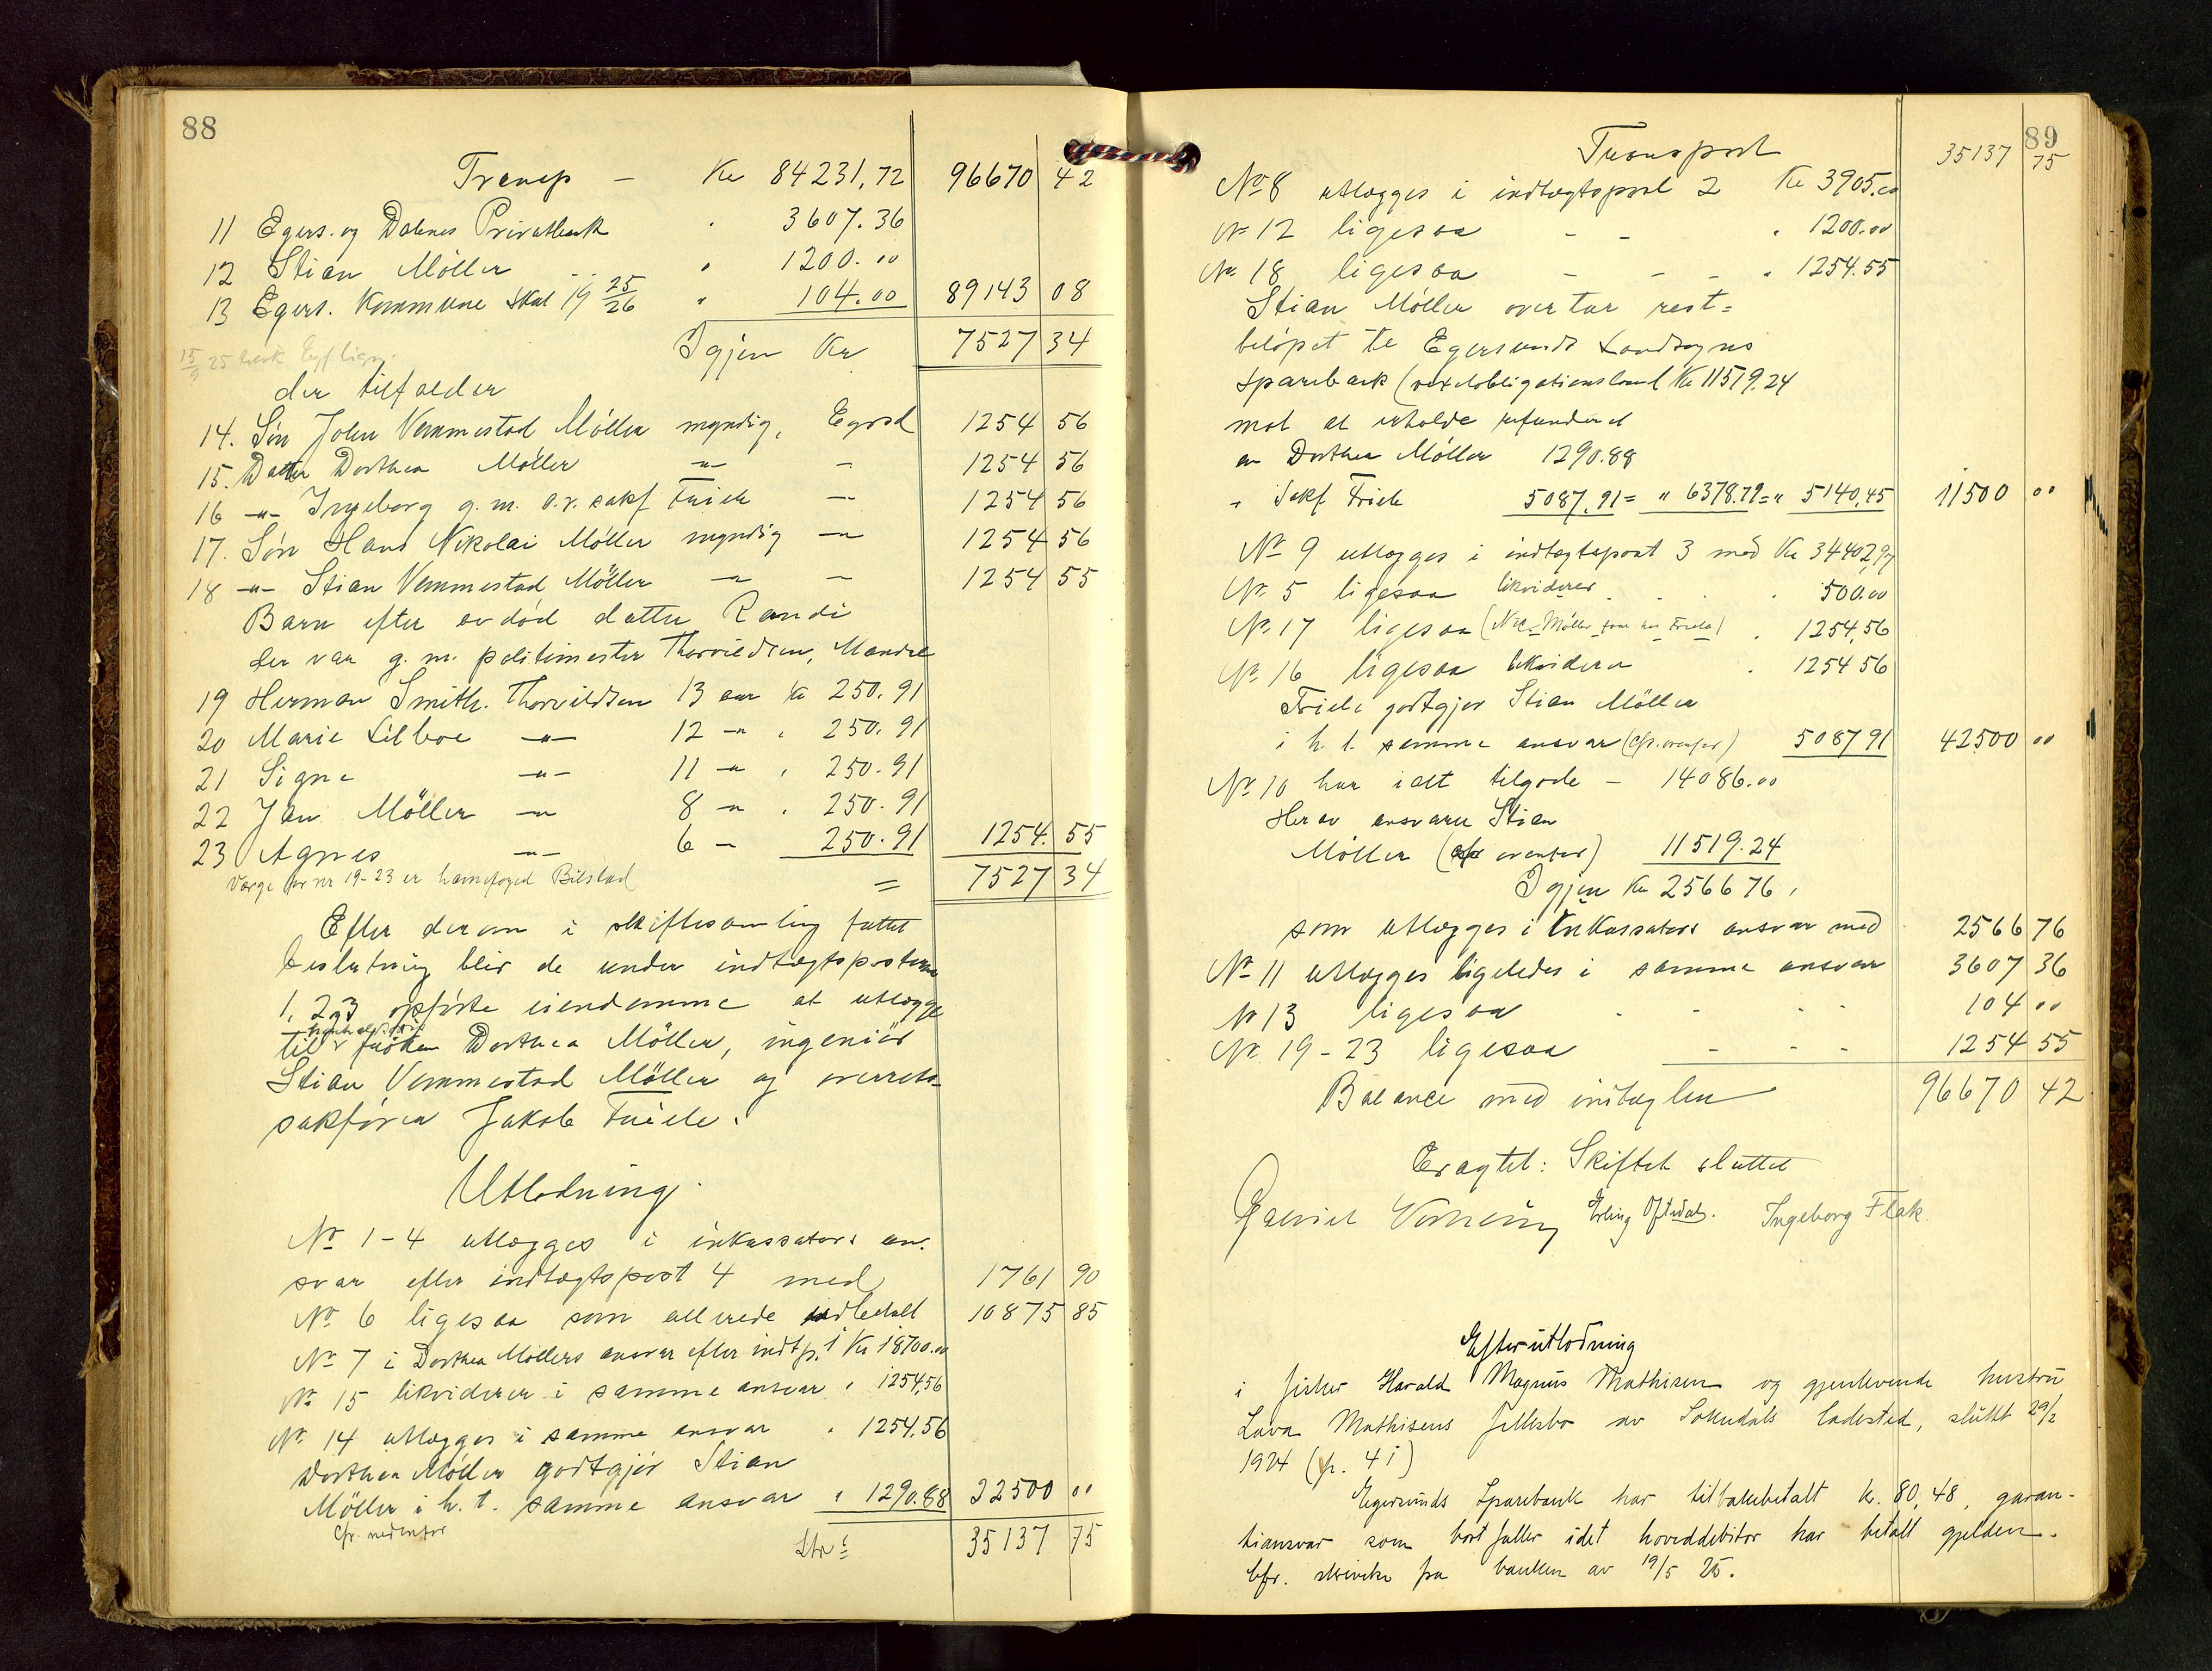 88
Transp - Kr 84231,72 96670 42
11 Egers. og Dalenes Privatbank " 3607.36
12 Stian Möller " 1200.00
13 Egers. Kommune skat 19 25/26 " 104.00 89143 08
Igjen Kr 7527 34
15/9 25
der tilfalder
14. Søn John Vemmestad Möller myndig, Egrsd 1254 56
15. Datter Dorthea Möller -"- - 1254 56
16 -"- Ingeborg g. m. o.r. sakf Friele - 1254 56
17. Søn Hans Nikolai Möller myndig -"- 1254 56
18 -"- Stian Vemmestad Möller -"- - 1254 55
Barn efter avdöd datter Randi
der var g. m. politimester Thorvildsen, Mandal
19 Herman Smith. Thorvildsen 13 aar Kr 250.91
20 Marie Lilboe -"- 12 -"- " 250.91
21 Signe -"- 11 -"- " 250.91
22 Jan Möller -"- 8 -"- " 250.91
23 Agnes -"- 6 - 250.91 1254. 55
Værge for nr 19-23 er havnefoged Bilstad = 7527 34
Efter derom i skiftesamling fattet
beslutning blir de under indtægtsposterne
1, 2 og 3 opførte eiendomme at utlægge
til frøken Dorthea Möller, ingeniör
Stian Vemmestad Möller og overrets-
sakfører Jakob Friele.
Utlodning.
No 1-4 utlægges i inkassators an-
svar efter indtægtspost 4 med 1761 90
No 6 ligesaa som allerede indbetalt 10875 85
No 7 i Dorthea Möllers ansvar efter indtp. 1 Kr 18700.00
No 15 likviderer i samme ansvar " 1254,56
No 14 utlægges i samme ansvar " 1254,56
Dorthea Möller godtgjör Stian
Möller i h. t. samme ansvar " 1290.88 22500 00
Cfr. nedenfor
Ltr: 35137 75
89
Transport 35137 75
No 8 utlægges i indtægtspost 2 Kr 3905.00
No 12 ligesaa - - " 1200.00
No 18 ligesaa - - - " 1254.55
Stian Möller overtar rest-
beløpet til Egersunds Landsogns
Sparebank (vexelobligationslaan) Kr 11519.24
mot at erholde refunderet
av Dorthea Möller 1290.88
" Sakf. Friele 5087.91 = " 6378.79 = " 5140.45 11500 00
No 9 utlægges i indtægtspost 3 med Kr 34402,97
No 5 ligesaa likviderer " 500.00
No 17 ligesaa (Nic. Möller 1254,56
No 16 ligesaa likviderer " 1254 56
Friele godtgjør Stian Möller
i h. t. samme ansvar (cfr. ovenfor) 5087 91 42500 00
No 10 har i alt tilgode - 14086.00
Herav ansvarer Stian
Möller (cfr ovenfor) 11519.24
Igjen Kr 2566 76,
som utlægges i Inkassators ansvar med 2566 76
No 11 utlægges ligeledes i samme ansvar 3607 36
No 13 ligesaa - - - 104 00
No 19-23 ligesaa - - - 1254 55
Balance med indtægten 96670 42
Eragtet: Skiftet sluttet
Gabriel Erling Oftedal. Ingeborg Flak.
Efterutlodning
i fisker Harald Magnus Mathisen og gjenlevende hustru
Lava Mathisens fellesbo av Sokndals ladested, sluttet 29/2
1924 (p. 41)
Egersunds Sparebank har tilbakebetalt kr. 80,48, garan-
tiansvar som bortfaller idet hoveddebitor har betalt gjelden.
Cfr. skrivelse fra banken av 19/5 25.